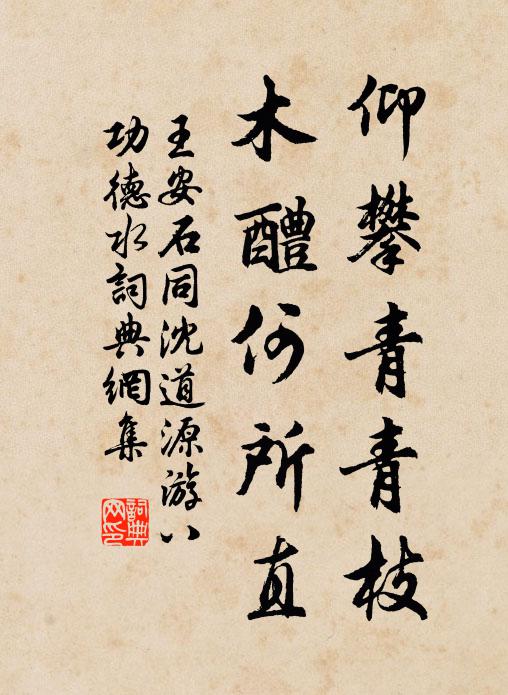 仰攀青青枝
木醴何所直
王安石同沈道源游八
功德水詞典網集
詞典网印